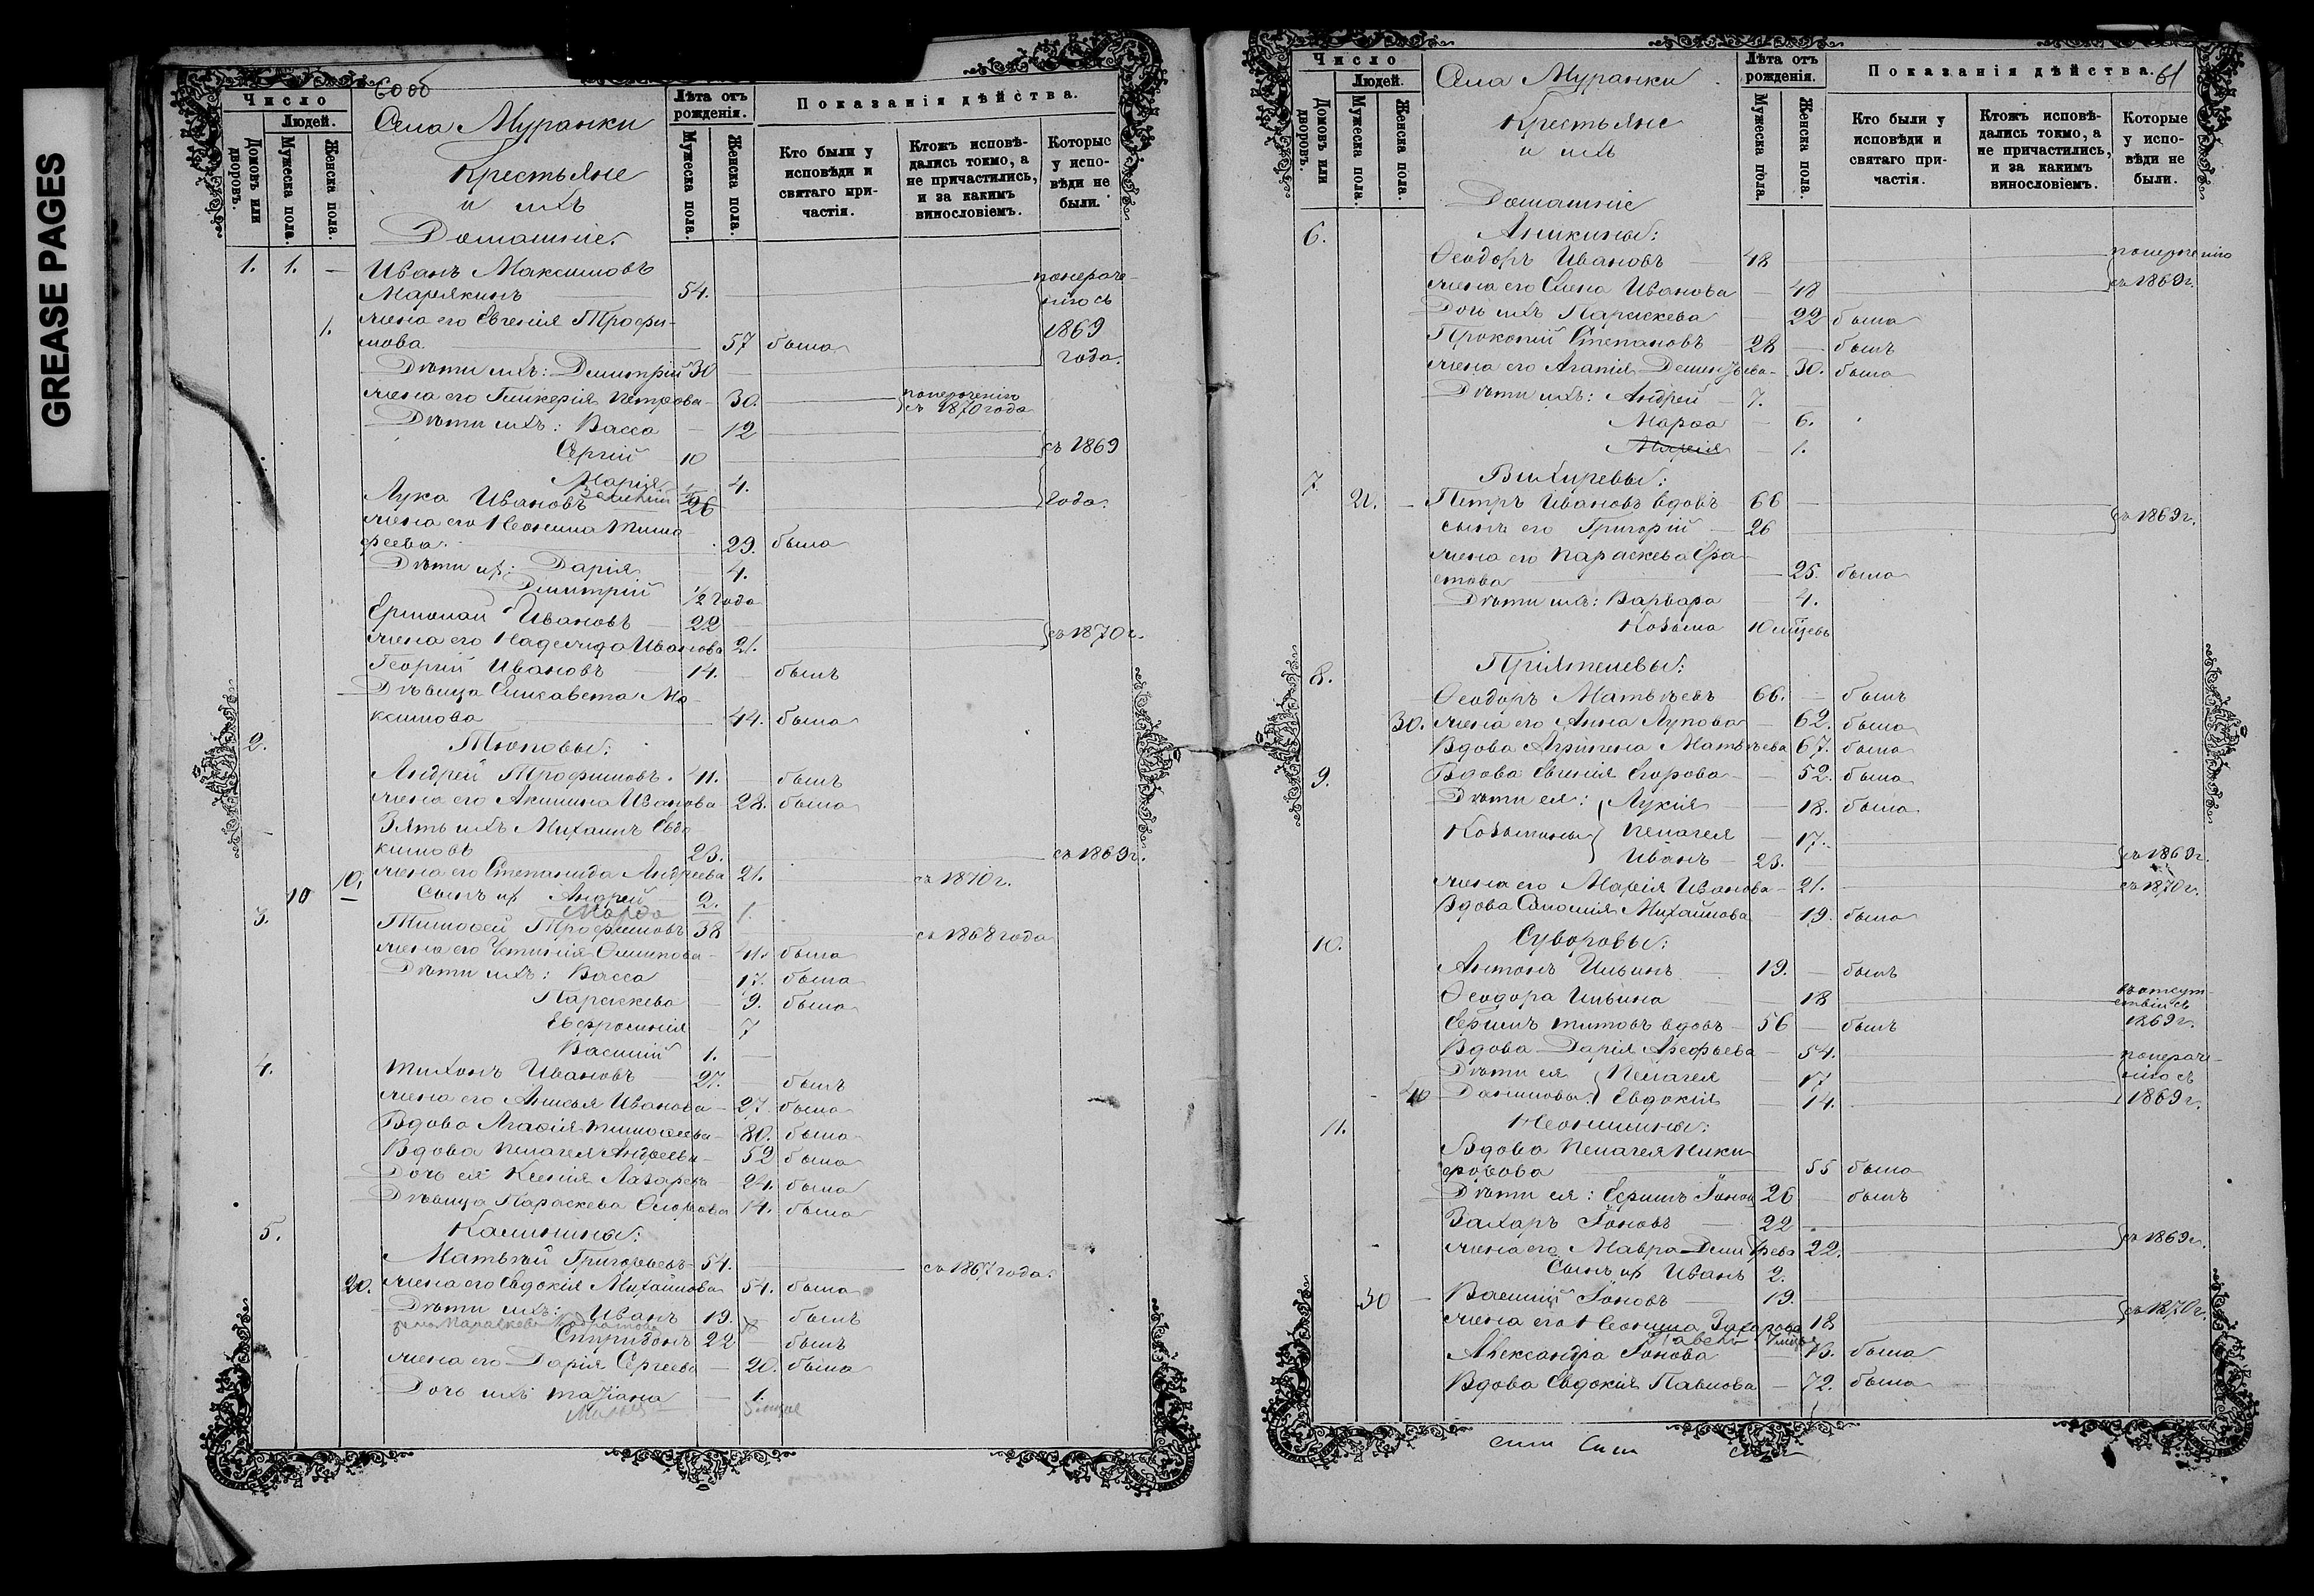 GREASE PAGES
60 об
Число
Людей.
Домовъ или дворовъ.
Мужеска пола.
Женска пола.
Села Муранки
Крестьяне
и ихъ
Домашніе.
Лѣта отъ рожденія.
Мужеска пола.
Женска пола.
Показанія дѣйства.
Кто были у исповѣди и святаго причастія.
Ктожъ исповѣдались токмо, а не причастились, и за какимъ винословіемъ.
Которые у исповѣди не были.
1. 1. — Иванъ Максимовъ
54.
понераче-
нію съ
1869
года.
1. жена его Евгенія Трофи-
мова 57 была
Дѣти ихъ: Димитрій 30 —
жена его Гликерія Петрова 30. понераченію
съ 1870 года
Дѣти ихъ: Васса — 12
Сергій — 10
съ 1869
года.
Марія 4.
Лука Ивановъ 26
жена его Неонила Тимо-
феева 29. была
Дѣти их: Дарія — 4.
Димитрій 1/2 года
Ермолай Ивановъ — 22
жена его Надежда Иванова 21. съ 1870 г.
Георгій Ивановъ — 14. — былъ
Дѣвица Елисавета Ма-
ксимова 44. была
2. Тюповы:
Андрей Трофимовъ. 41. — былъ
жена его Акилина Иванова 28. была
Зять ихъ Михаилъ Евдо-
кимовъ 23. съ 1869 г.
жена его Степанида Андреева 21. съ 1870 г.
10 10. сынъ их Андрей 2.
Марфа 1.
3. Тимофей Трофимовъ 38 съ 1868 года
жена его Устинія Филипова 41. была
Дѣти ихъ: Васса — 17. была
Параскева — 9. была
Евфросинія — 7
Василій 1. —
4. Тихонъ Ивановъ — 27. — былъ
жена его Анисья Иванова 27. была
Вдова Агафія Тимофеева 80. была
Вдова Пелагея Андреева 52 была
Дочь ея Ксенія Лазарева 24. была
Дѣвица Параскева 14. была
5. Калинины:
Матвѣй Григорьевъ 54. съ 1867 года.
20. жена его Евдокія Михайлова 54. была
Дѣти ихъ: Иванъ 19. — былъ
жена Параскева
Спиридонъ 22 — былъ
жена его Дарія Сергеева — 20. была
Дочь ихъ Татіана — 1.
61
Число
Людей.
Домовъ или дворовъ.
Мужеска пола.
Женска пола.
Села Муранки
Крестьяне
и ихъ
Домашніе
Лѣта отъ рожденія.
Мужеска пола.
Женска пола.
Показанія дѣйства.
Кто были у исповѣди и святаго причастія.
Ктожъ исповѣдались токмо, а не причастились, и за какимъ винословіемъ.
Которые у исповѣди не были.
6. Аникины:
Ѳеодоръ Ивановъ — 48 понераченію
съ 1869 г.
жена его Елена Иванова — 48
Дочь ихъ Параскева — 22 была
Прокопій Степановъ — 28 — былъ
жена его Агапія 30. была
Дѣти ихъ: Андрей — 7.
Марфа — 6.
Марія — 1.
7 Вихиревы:
Петръ Ивановъ вдовъ 66 —
сынъ его Григорій — 26 съ 1869 г.
жена его Параскева
25. была
Дѣти ихъ: Варвара — 4.
Козьма 10 мѣсяцевъ
8. Пріятелевы:
Ѳеодоръ Матвѣевъ 66. — былъ
30. жена его Анна Лупова — 62. была
Вдова Агрипена Матвѣева 67. была
9. Вдова Евгенія Егорова — 52. была
Дѣти ея: Лукія — 18. была
Козьмины Пелагея — 17.
Иванъ — 23. съ 1869 г.
жена его Марія Иванова 21. съ 1870 г.
Вдова Соломія Михайлова 19. была
10. Суворовы:
Антонъ Ильинъ — 19. — былъ
Ѳеодора Ильина — 18 въ отсут-
ствіи съ
1869 г.
Сергилъ Титовъ вдовъ — 56 — былъ
Вдова Дарія Арефьева — 54. понераче-
нію съ
1869 г.
Дѣти ея Пелагея — 17
40 Даниловы Евдокія — 14.
11. Неонилины:
Вдова Пелагея Ники-
форова 55 была
Дѣти ея: Іоновъ 26 — былъ
Захаръ Іоновъ — 22
жена его Мавра Димитріева 22. съ 1869 г.
Сынъ их Иванъ 2.
30 — Василій Іоновъ 19.
жена его Неонила Захарова 18 съ 1870 г.
Александра Іонова 13. была
Вдова Евдокія Павлова — 72. была